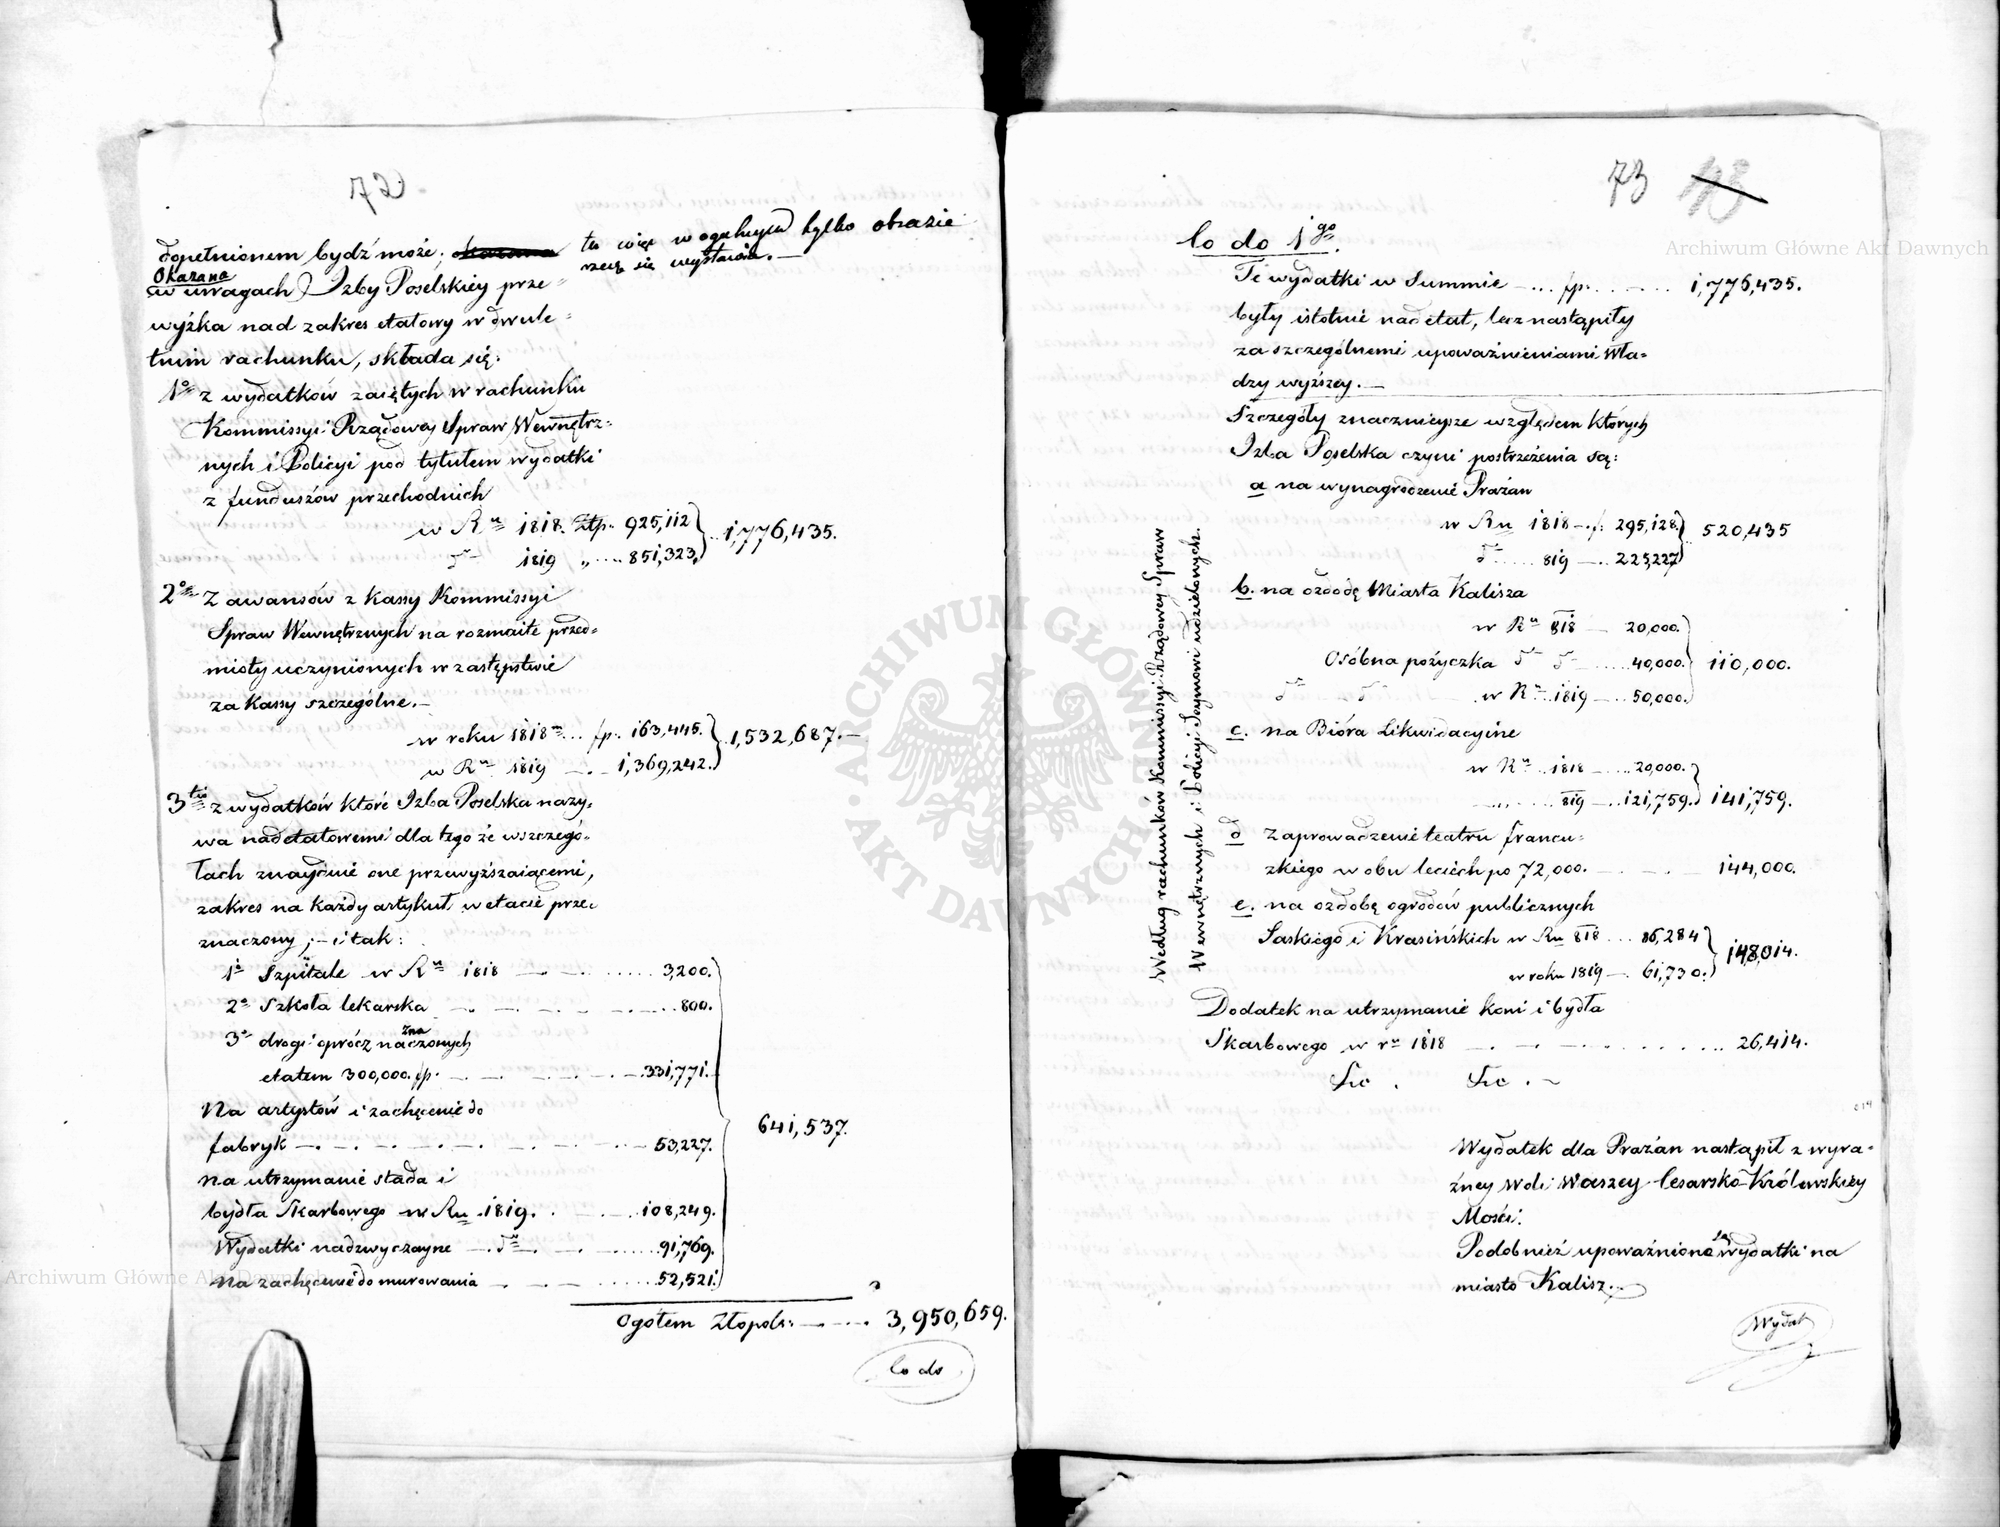 72
dopełnionem bydź może; tu więc w ogulnym tylko obrazie
rzecz się wystawia. —
Okazana
w uwagach Izby Poselskiey prze-
wyżka nad zakres etatowy w dwule-
tnim rachunku, składa się:
1° z wydatków zaiętych w rachunku
Kommissyi Rządowey Spraw Wewnętrz-
nych i Policyi pod tytułem wydatki
z funduszów przechodnich
w Ru 1818. Złp. 925,112
1,776,435.
d° 1819 „ .... 851,323,
2° Z awansów z kassy Kommissyi
Spraw Wewnętrznych na rozmaite przed-
mioty uczynionych w zastępstwie
za kassy szczególne. —
w roku 1818 ... fp. 163,445.
1,532,687. —
w Ru 1819 — . — 1,369,242.
3tio z wydatków które Izba Poselska nazy-
wa nadetatowemi dla tego że w szczegó-
łach znaydzie one przewyższaiącemi,
zakres na każdy artykuł w etacie prze-
znaczony; — i tak:
1° Szpitale w Ru 1818 — . — ...... 3,200.
2° Szkoła lekarska — . — . — ...... 800.
3° drogi oprócz naznaczonych
etatem 300,000. fp. — . — . — . — 331,771.
Na artystów i zachęcenie do
641,537.
fabryk — . — . — . — . — 53,227.
na utrzymanie stada i
bydła Skarbowego w Ru 1819. . — . — 108,249.
Wydatki nadzwyczayne — d° — . — ...... 91,769.
na zachęcenie do murowania — . — ...... 52,521.
Ogółem Złopols: — . — . 3,950,659.
Co do
73
Co do 1go
Te wydatki w Summie — ... fp. .... 1,776,435.
były istotnie nad etat, lecz nastąpiły
za szczególnemi upoważnieniami Wła-
dzy wyższey. —
Szczegóły znacznieysze względem których
Izba Poselska czyni postrzeżenia są:
a na wynagrodzenie Prażan
w Ru 1818 — . f. 295,128.
520,435
d° ..... 819 — .. 225,227
b. na ozdobę Miasta Kalisza
w Ru 818 — 20,000.
Osóbna pożyczka d° d° — .... 40,000.
110,000.
d° — d° — . w Ru 1819 — .. 50,000.
c. na Bióra Likwidacyine
w Ru .. 1818 — .... 20,000.
— . ..... 819 — .. 121,759.
141,759.
d Zaprowadzenie teatru francu-
zkiego w obu leciech po 72,000. — . — . — 144,000.
e. na ozdobę ogrodów publicznych
Saskiego i Krasińskich w Ru 818 ... 86,284
148,014.
w roku 1819 — . 61,730.
Dodatek na utrzymanie koni i bydła
Skarbowego w ru 1818 — . — . — ...... 26,414.
Według rachunków Kommissyi Rządowey Spraw
Wewnętrznych i Policyi Seymowi udzielonych.
Wydatek dla Prażan nastąpił z wyra-
źney Woli Waszey Cesarsko-Królewskiey
Mości.
Podobnież upoważnione są wydatki na
miasto Kalisz. —
Wydat
Archiwum Główne Akt Dawnych
Archiwum Główne Akt Dawnych
ARCHIWUM GŁÓWNE AKT DAWNYCH